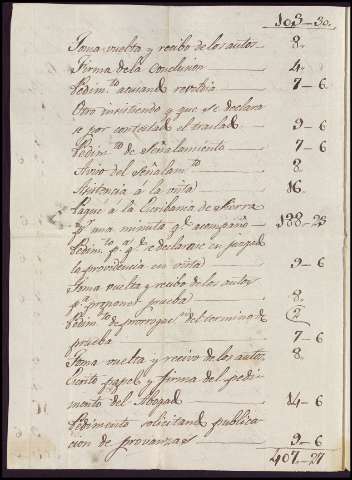 103-30.
Toma vuelta y recibo de los autos 8.
Firma de la Conclusion 4.
Pedim.to acusando revoldia 7-6
Otro insistiendo y que se declara
se por contestado el traslado 9-6
Pedim.to de Señalamiento 7-6
Aviso del Señalam.to 8.
Asistencia á la vista 16.
Pagué á la Escribania de Sierra
p.r una minuta q.e acompaño 188-28
Pedim.to p.a q.e se declarase en
la providencia en vista 9-6
Toma vuelta y recibo de los autos
p.a proponer prueba 8.
Pedim.to de prorrogac.on del termino de
prueba 7-6
Toma vuelta y recivo de los autos 8
Escrito papel y firma del pedi-
mento del Abogado 14-6
Pedimento solicitando publica-
cion de provanzas 9-6
407-27